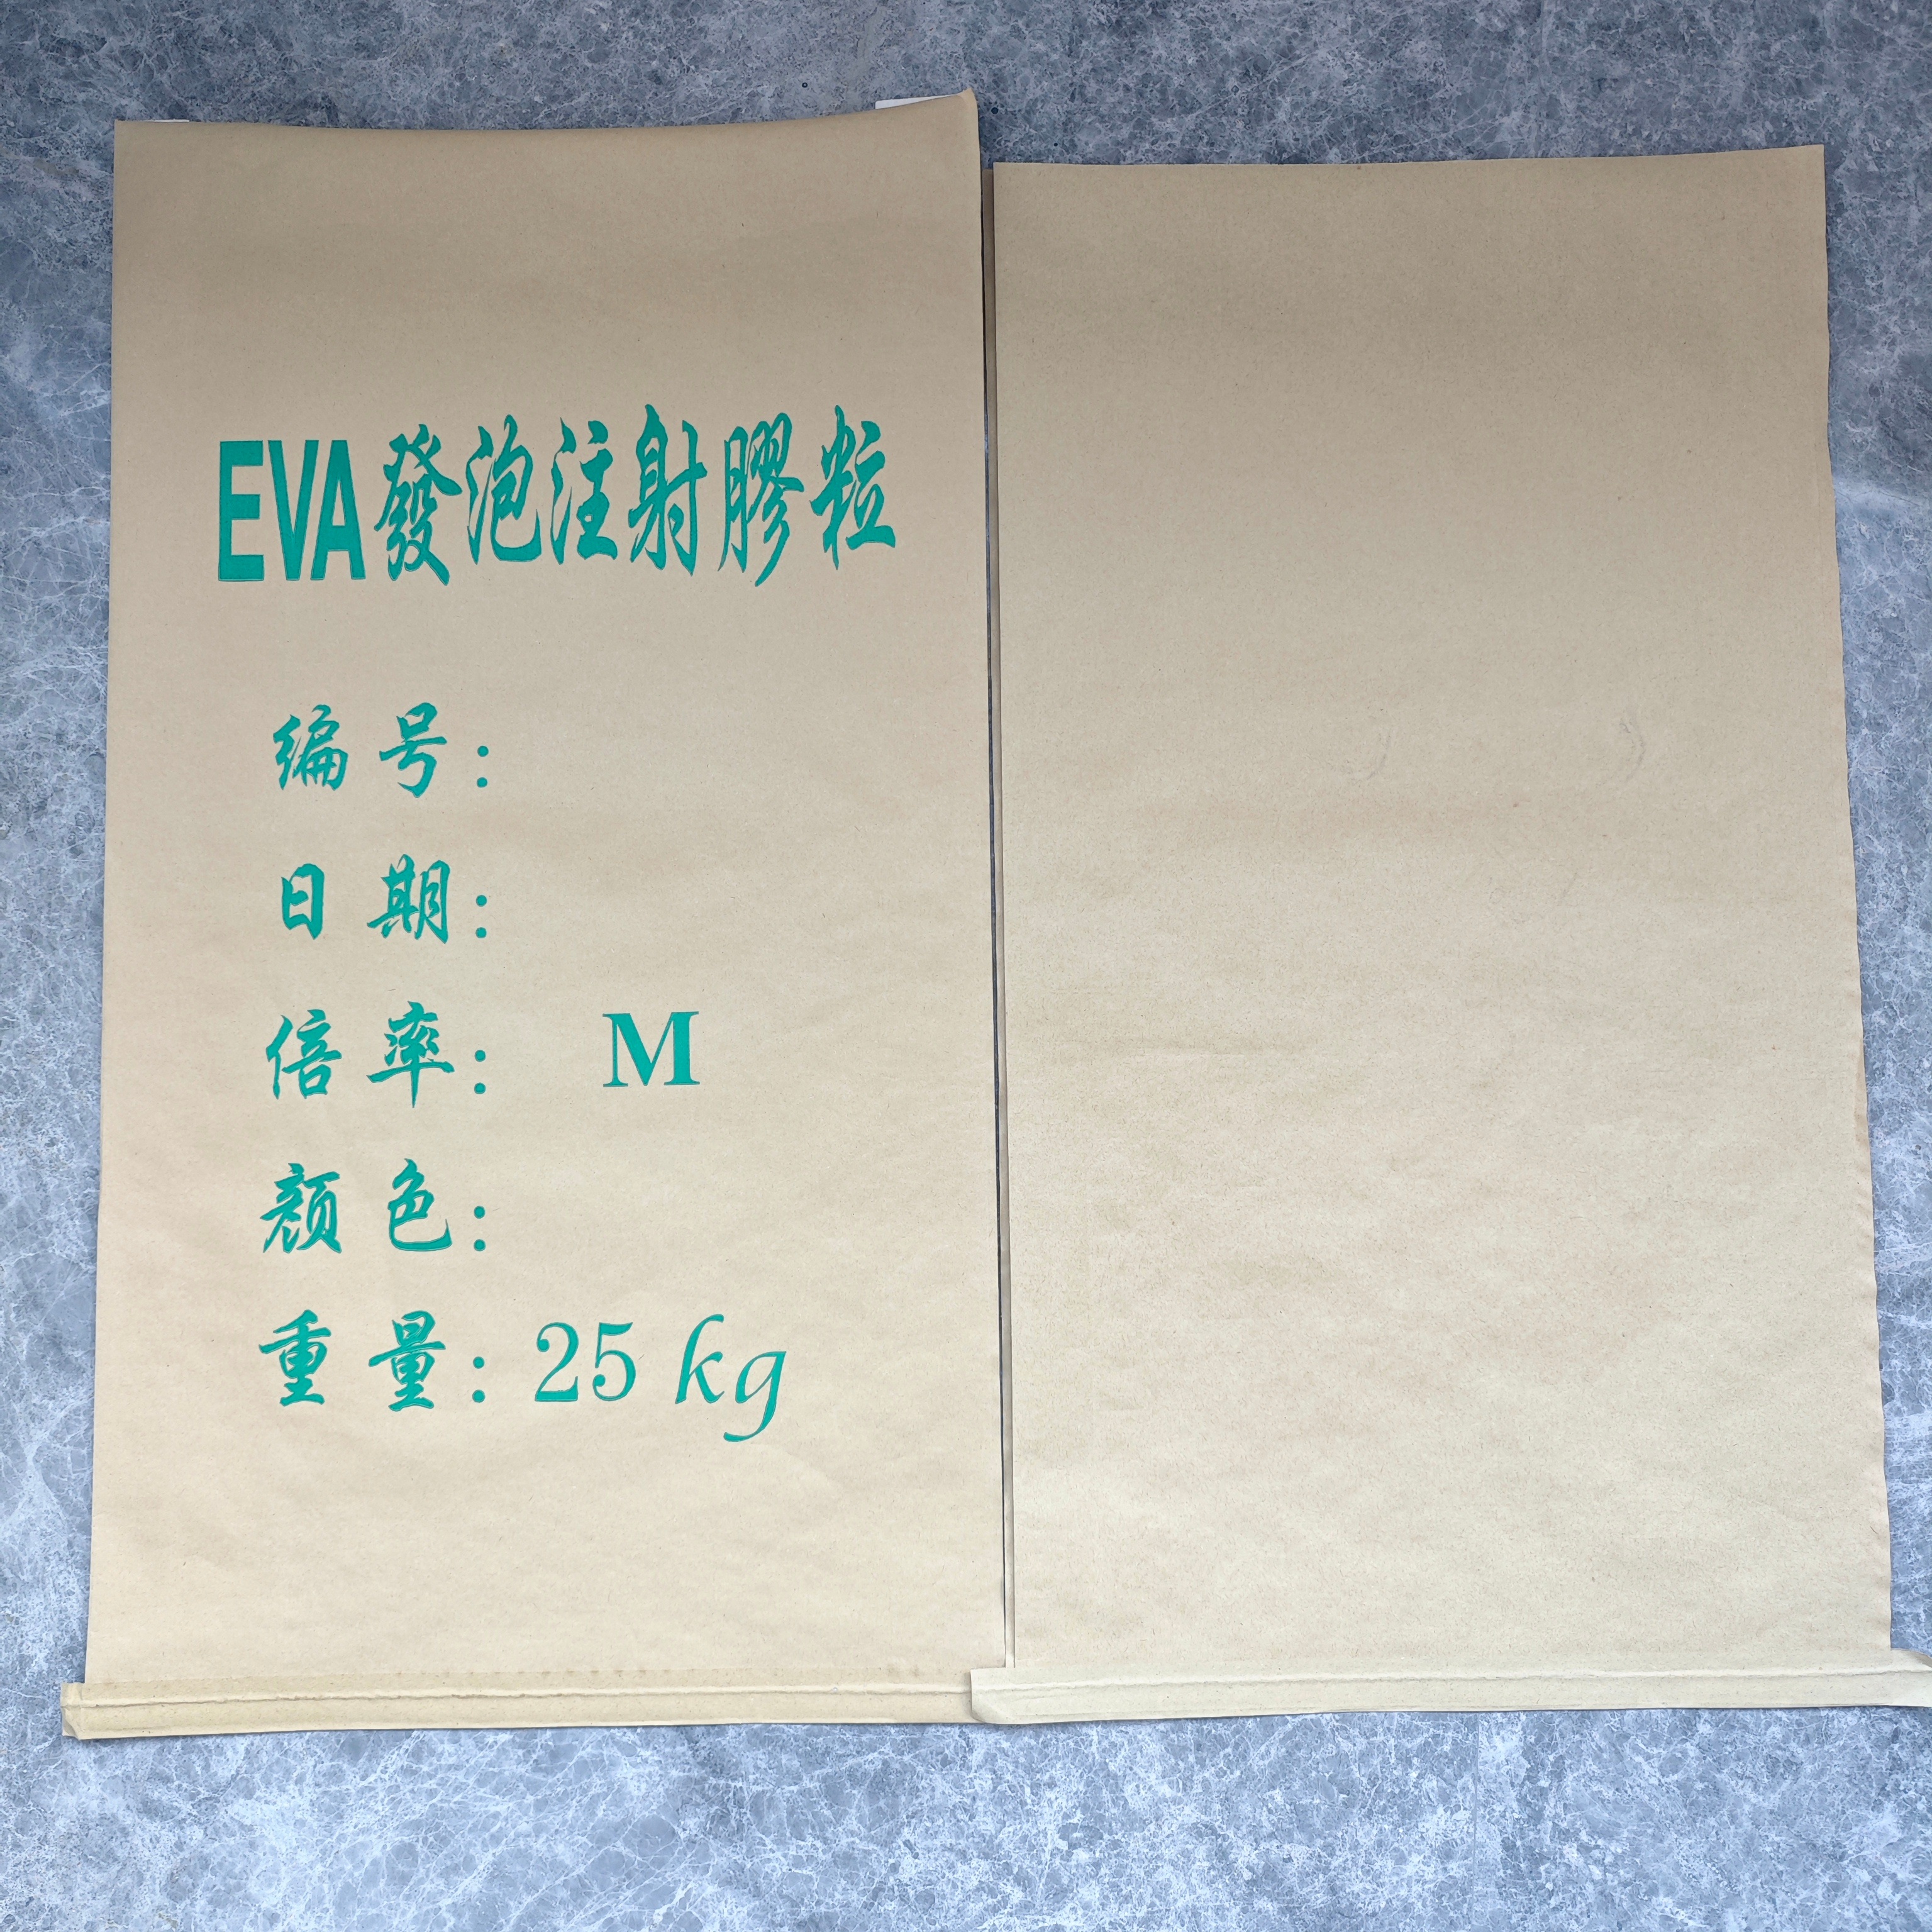 EVA發泡注射膠粒
编号:
日期:
倍率: M
颜色:
重量: 25 kg